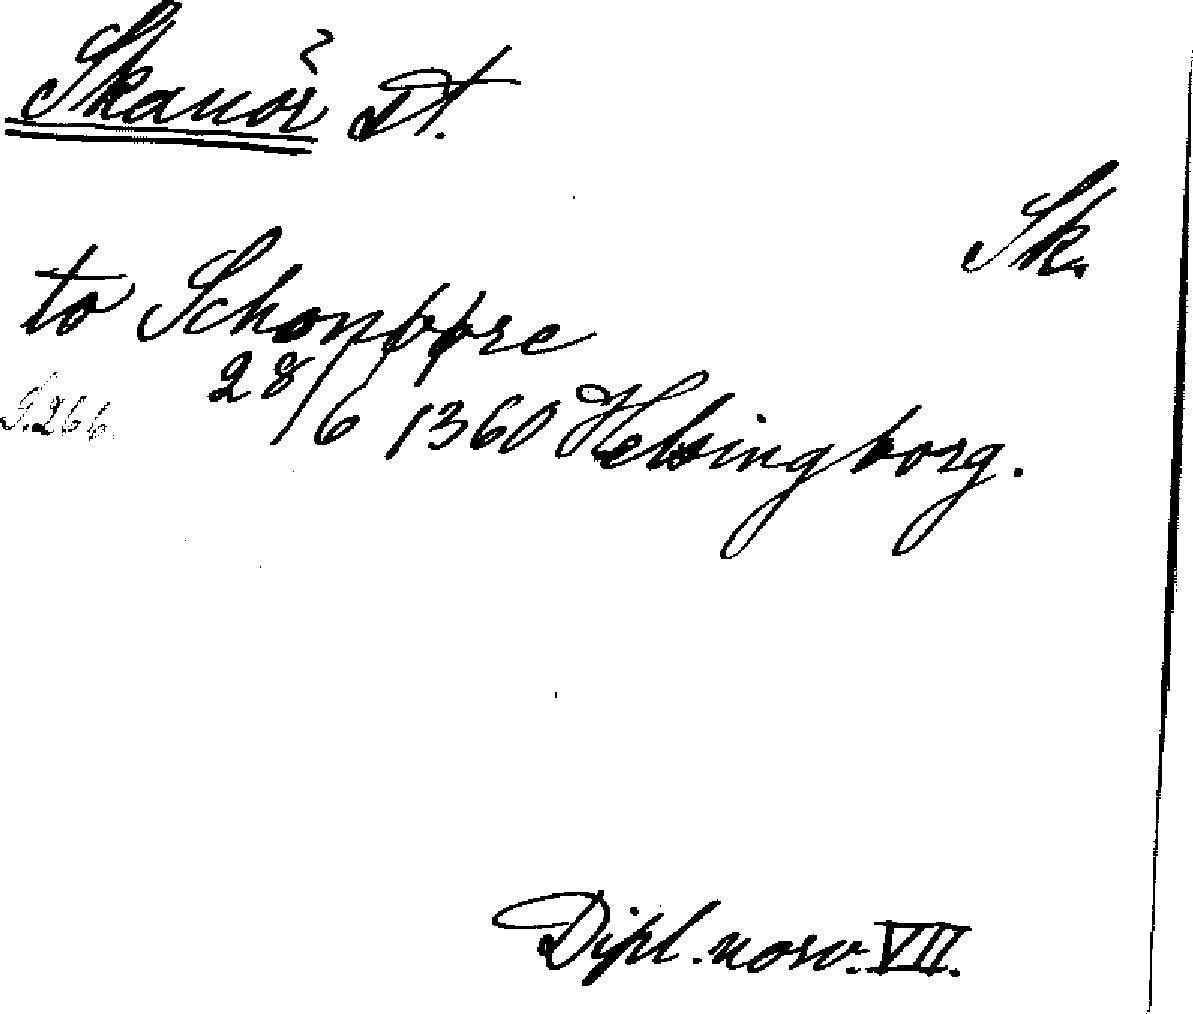 Skanör St.
Sk.
to Schonøøre
28/6 1360 Helsingborg.
S. 266.
Dipl. norv. VII.